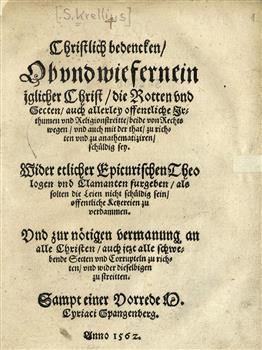 [S. Krellius]
Christlich bedencken/
Ob vnd wiefern ein
jglicher Christ/ die Rotten vnd
Secten/ auch allerley offentliche Jr-
thumen vnd Religionstreitte/ beide von Rechts
wegen/ vnd auch mit der that/ zu rich-
ten vnd zu anathematiziren/
schüldig sey.
Wider etlicher Epicurischen Theo
logen vnd Clamanten furgeben/ als
solten die Leien nicht schüldig sein/
offentliche Ketzereien zu
verdammen.
Vnd zur nötigen vermanung an
alle Christen/ auch jtzt alle schwe-
bende Secten vnd Corrupteln zu rich-
ten/ vnd wider dieselbigen
zu streitten.
Sampt einer Vorrede M.
Cyriaci Spangenberg.
Anno 1562.